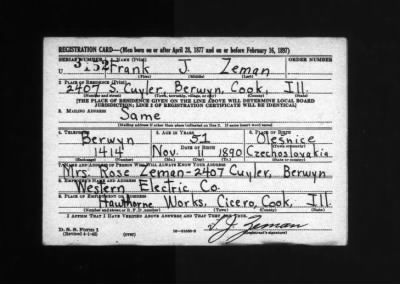 REGISTRATION CARD—(Men born on or after April 28, 1877 and on or before February 16, 1897)
SERIAL NUMBER 1. NAME (Print) ORDER NUMBER
U 3152 Frank J. Zeman
(First) (Middle) (Last)
2. PLACE OF RESIDENCE (Print)
2407 S. Cuyler, Berwyn, Cook, Ill.
(Number and street) (Town, township, village, or city) (County) (State)
[THE PLACE OF RESIDENCE GIVEN ON THE LINE ABOVE WILL DETERMINE LOCAL BOARD
JURISDICTION; LINE 2 OF REGISTRATION CERTIFICATE WILL BE IDENTICAL]
3. MAILING ADDRESS
Same
(Mailing address if other than place indicated on line 2. If same insert word same)
4. TELEPHONE 5. AGE IN YEARS 6. PLACE OF BIRTH
Berwyn 51 Olesnice
DATE OF BIRTH (Town or county)
1414 Nov. 11 1890 Czechoslovakia
(Exchange) (Number) (Mo.) (Day) (Yr.) (State or country)
7. NAME AND ADDRESS OF PERSON WHO WILL ALWAYS KNOW YOUR ADDRESS
Mrs. Rose Zeman-2407 Cuyler, Berwyn
8. EMPLOYER'S NAME AND ADDRESS
Western Electric Co.
9. PLACE OF EMPLOYMENT OR BUSINESS
Hawthorne Works, Cicero, Cook, Ill.
(Number and street or R. F. D. number) (Town) (County) (State)
I AFFIRM THAT I HAVE VERIFIED ABOVE ANSWERS AND THAT THEY ARE TRUE.
D. S. S. Form 1
(Revised 4-1-42) (over) J. Zeman
(Registrant's signature)